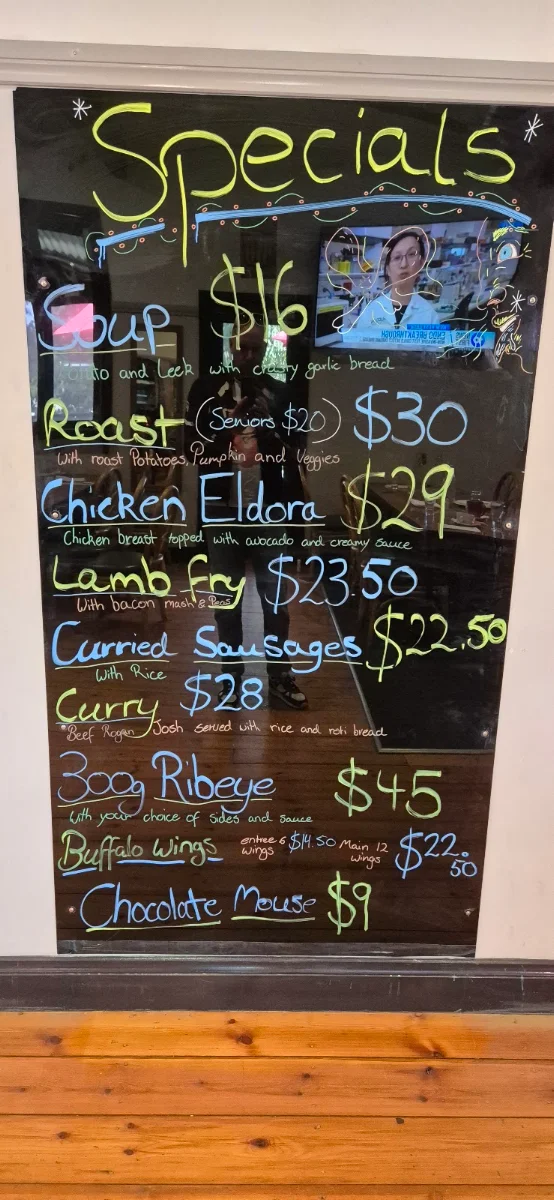 * Specials *
Soup $16
and Leek with crusty garlic bread
Roast (Seniors $20) $30
With roast Potatoes, Pumpkin and Veggies
Chicken Eldora $29
Chicken breast topped with avocado and creamy sauce
Lamb fry $23.50
With bacon mash & Peas
Curried Sausages $22.50
With Rice
Curry $28
Beef Rogan Josh served with rice and roti bread
300g Ribeye $45
With your choice of sides and sauce
Buffalo Wings entree 6 wings $14.50 Main 12 wings $22.50
Chocolate Mouse $9